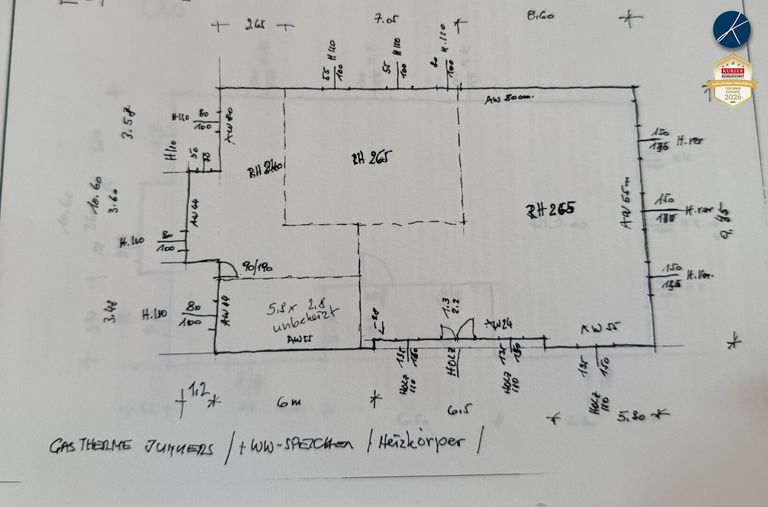 2.65
7.05
8.60
KURIER
AUSGEZEICHNET
2026
55
100
H 110
55
100
H 110
80
100
H.110
AW 80cm
3.58
H.110
80
100
AW 80
H 110
50
70
RH 240
RH 265
RH 265
150
135
H.ver
150
135
H.ver
150
135
H.ver.
AW 55m
9.85
10.60
3.60
AW 64
H.100
80
100
90/190
3.48
H.100
80
100
AW 64
5.8 x 2.8
unbeheizt
AW 55
1.3
2.2
AW 24
AW 55
HOLZ
HOLZ
110
135
150
HOLZ
110
135
150
HOLZ
110
135
150
1.2
6 m
6.5
5.80
GASTHERME JUNKERS / + WW-SPEICHER / Heizkörper /